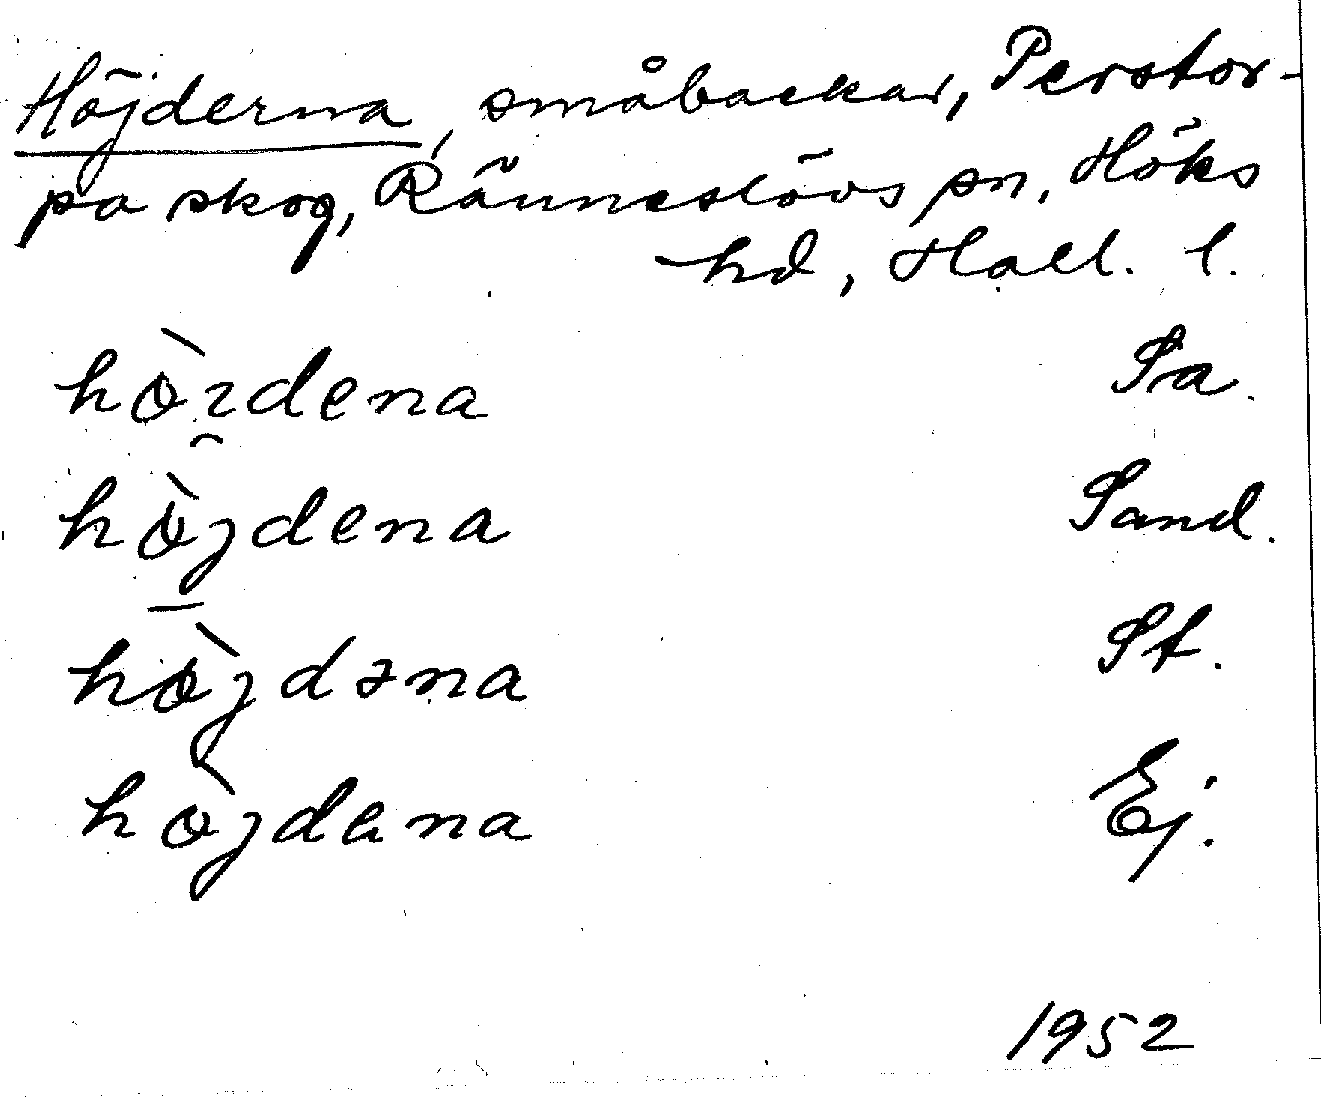 Höjderna, småbackar, Perstor-
pa skog, Ränneslövs sn, Höks
hd, Hall. l.
hòi̯dena Sa.
hòjdena Sand.
hòjdəna St.
hòjdena Ej.
1952